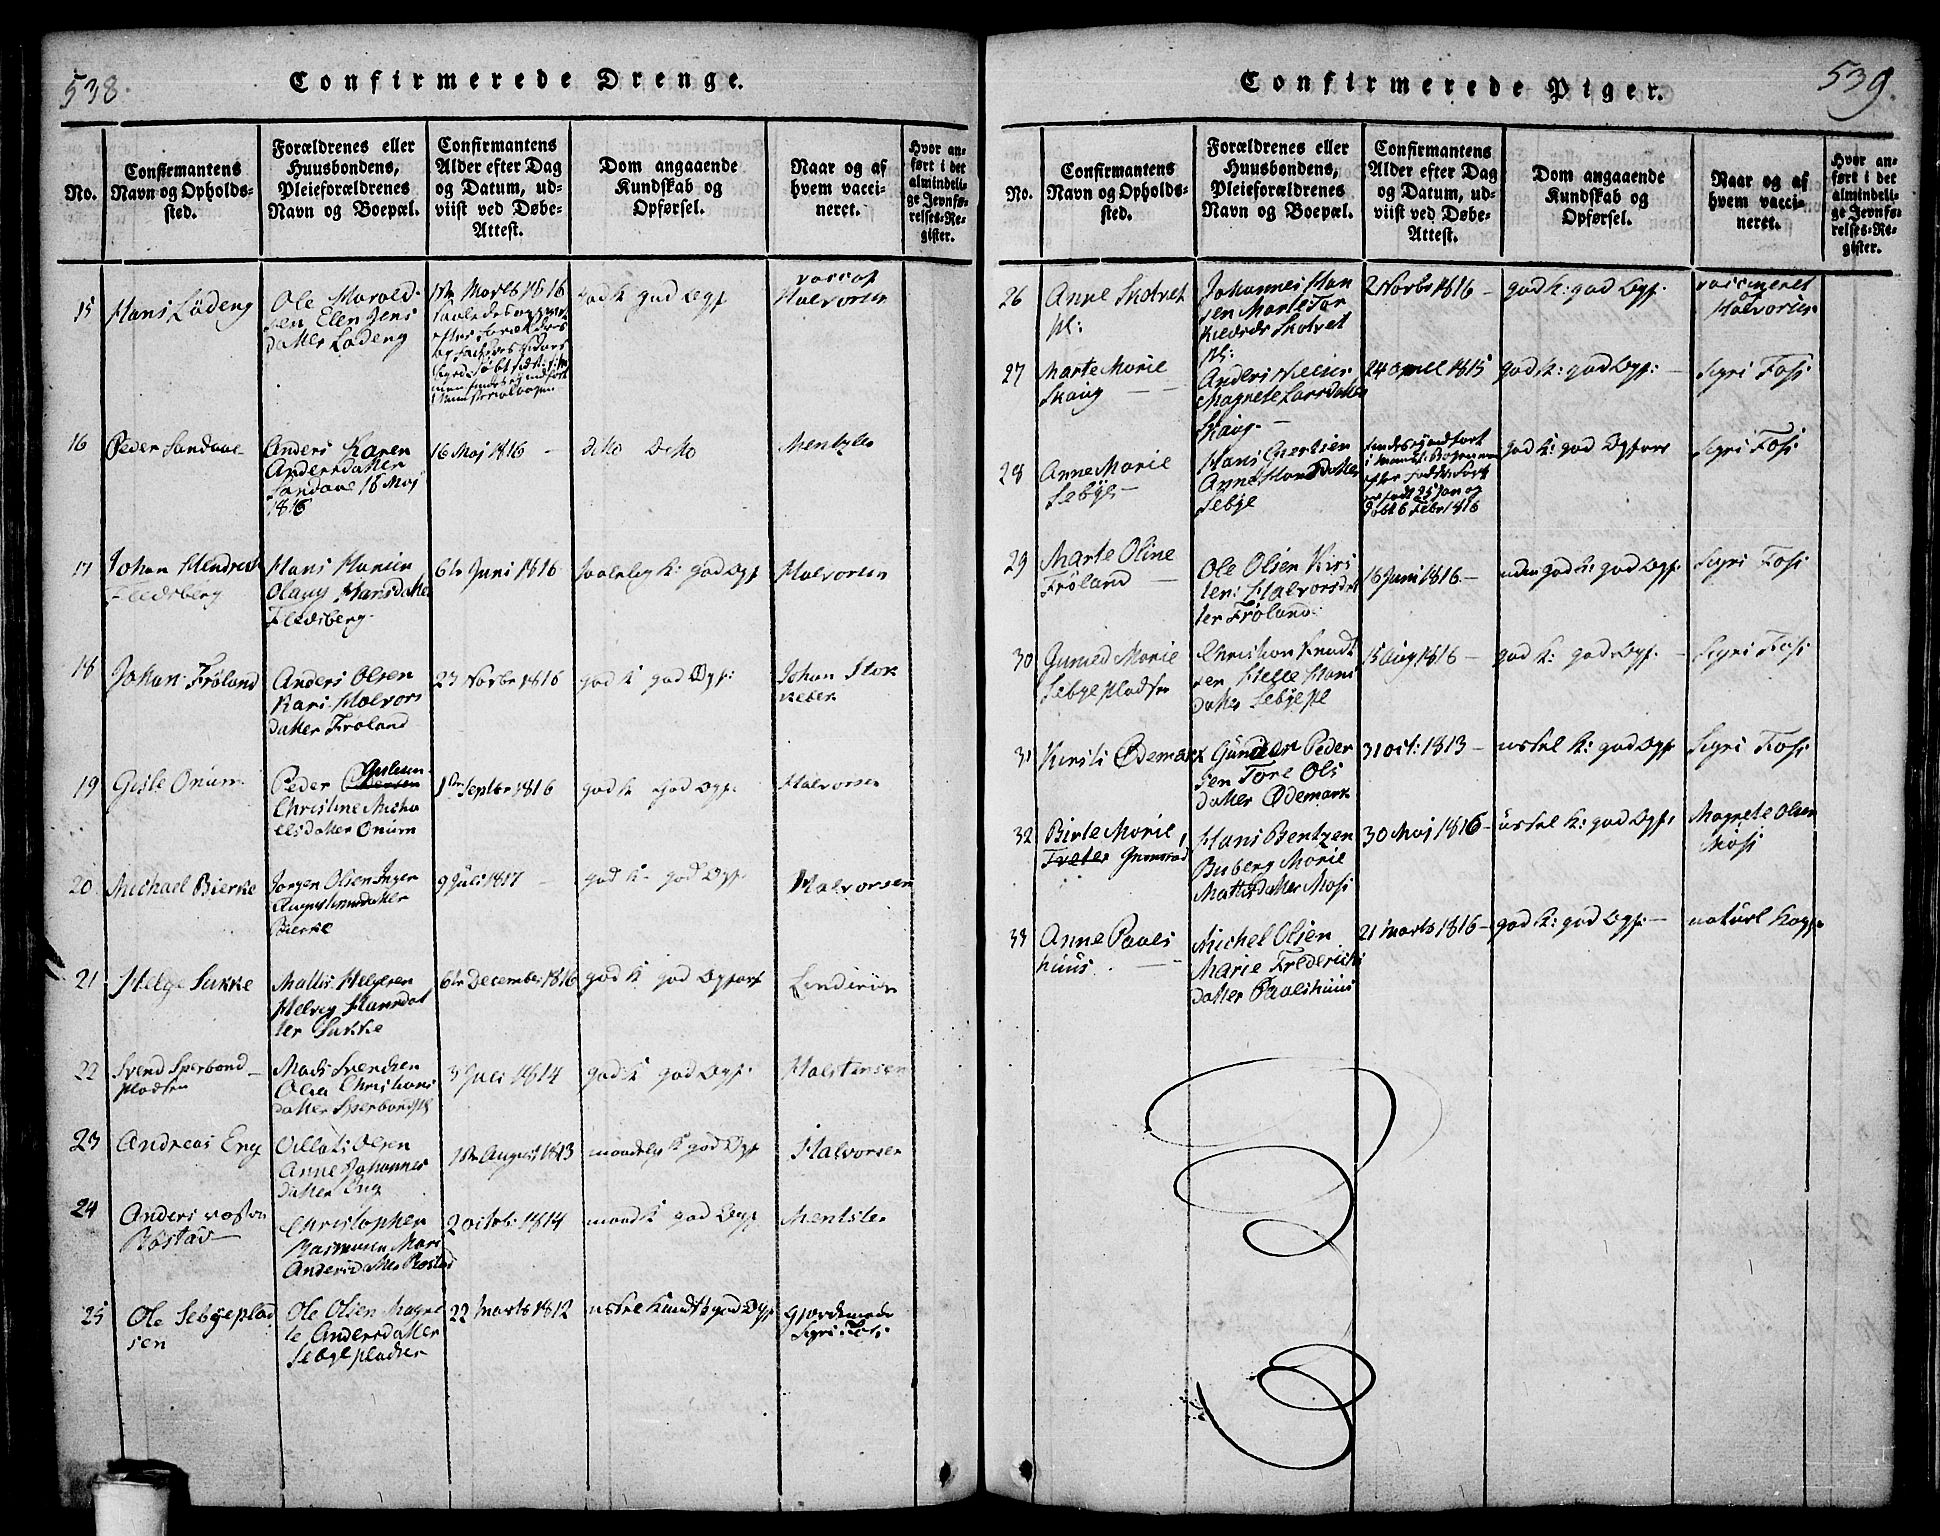 538.
Confirmerede Drenge.
No.
Confirmantens
Navn og Opholds-
sted.
Forældrenes eller
Huusbondens,
Pleieforældrenes
Navn og Boepæl.
Confirmantens
Alder efter Dag
og Datum, ud-
viist ved Døbe-
Attest.
Dom angaaende
Kundskab og
Opførsel.
Naar og af
hvem vacci-
neret.
Hvor an-
ført i det
almindeli-
ge Jevnfø-
relses-Re-
gister.
15
Hans Lödeng
Ole Harald-
sen Ellen Jens
datter Lödeng
Marts 1816
god K god Opf
vacc af
Halvorsen
16
Peder Sandaae
Anders Karen
Andersdatter
Sandaae 16 Maj
1816
16 Maj 1816 -
dito dito
Mentzler
17
Johan Hendrich
Hans Hansen
Olaug Hansdatter
6te Juni 1816
K: god Opf
Halvorsen
18
Johan Fröland
Anders Olsen
Kari Halvors
datter Fröland
23 Novbr 1816
god K god Opf:
Johan Stok
19
Gisle Onum
Peder Gislesen
Christine Micha
elsdatter Onum
1ste Septbr 1816
god K god Opf:
Halvorsen
20
Michael Bierke
Jørgen Olsen Inger
Augustinusdatter
Bierke
9 Juli 1817 -
god K- god Opf.
Halvorsen
21
Helge Sukke
Mattis Helgesen
Helvig Hansdat
ter Sukke
6te December 1816
god K god Opførs
22
Svend Sperbond
pladsen
Mads Svendsen
Olea Christians
datter Sperbondpl
3 Juli 1814
god K god Opf.
Halstensen
23
Andreas Eng
Olsen
Anne Johannes
datter Eng
1ste August 1813
maadelig K god Opf
Halvorsen
24
Anders
Böstad
Christopher
Rasmusen Mari
Andersdatter Böstad
2 octbr 1814
maad K god Opf
Mentzler
25
Ole Sebyeplad
sen
Ole Olsen Magne
te Andersdatter
Sebyepladsen
22 Marts 1812
god Opf
Gjordemode
Sigri Foss
539.
Confirmerede Piger.
No.
Confirmantens
Navn og Opholds-
sted.
Forældrenes eller
Huusbondens,
Pleieforældrenes
Navn og Boepæl.
Confirmantens
Alder efter Dag
og Datum, ud-
viist ved Døbe-
Attest.
Dom angaaende
Kundskab og
Opførsel.
Naar og af
hvem vacci-
neret.
Hvor an-
ført i det
almindeli-
ge Jevnfø-
relses-Re-
gister.
26
Anne Skotvet
pl:
Johannes Han
sen Marte Tor
Skotvet
pl:
2 Novbr 1816 -
god K: god Opf.
vaccineret
af
Halvorsen
27
Marte Marie
Skaug -
Anders Nielsen
Magnete Larsdatter
Skaug -
24 april 1815
god K: god Opf: -
Sigri Foss
28
Anne Marie
Sebye -
Hans
Anne Hansdatter
Sebye
født 25 Jan og
döbt 6 Febr 1816
god K: god Opførs
Sigri Foss
29
Marte Oline
Fröland -
Ole Olsen Kirs
ten Halvorsdat
ter Fröland:
16 Juni 1816 -
god K: god Opf.
Sigri Foss
30
Gunild Marie
Sebye pladsen
Christian Knud
sen Helle Hans
datter Sebye pl
15 Aug 1816 -
god K: god Opf. -
Sigri Foss
31
Kirsti Ødemark
Gunder Peder
sen Tore Ols
datter Ødemark
31 oct: 1813 -
ustel K: god Opf
Sigri Foss
32
Birte Marie
Hans Bentzen
Buberg Marie
Mattisdatter Moss
30 Maj 1816 -
ustel K: god Opf:
Magnete Olsen
Moss
33
Anne Pauls
huus. -
Michel Olsen
Marie Frederichs
datter Paulshuus
21 Marts 1816 -
god K: god Opf: -
naturl Kopp